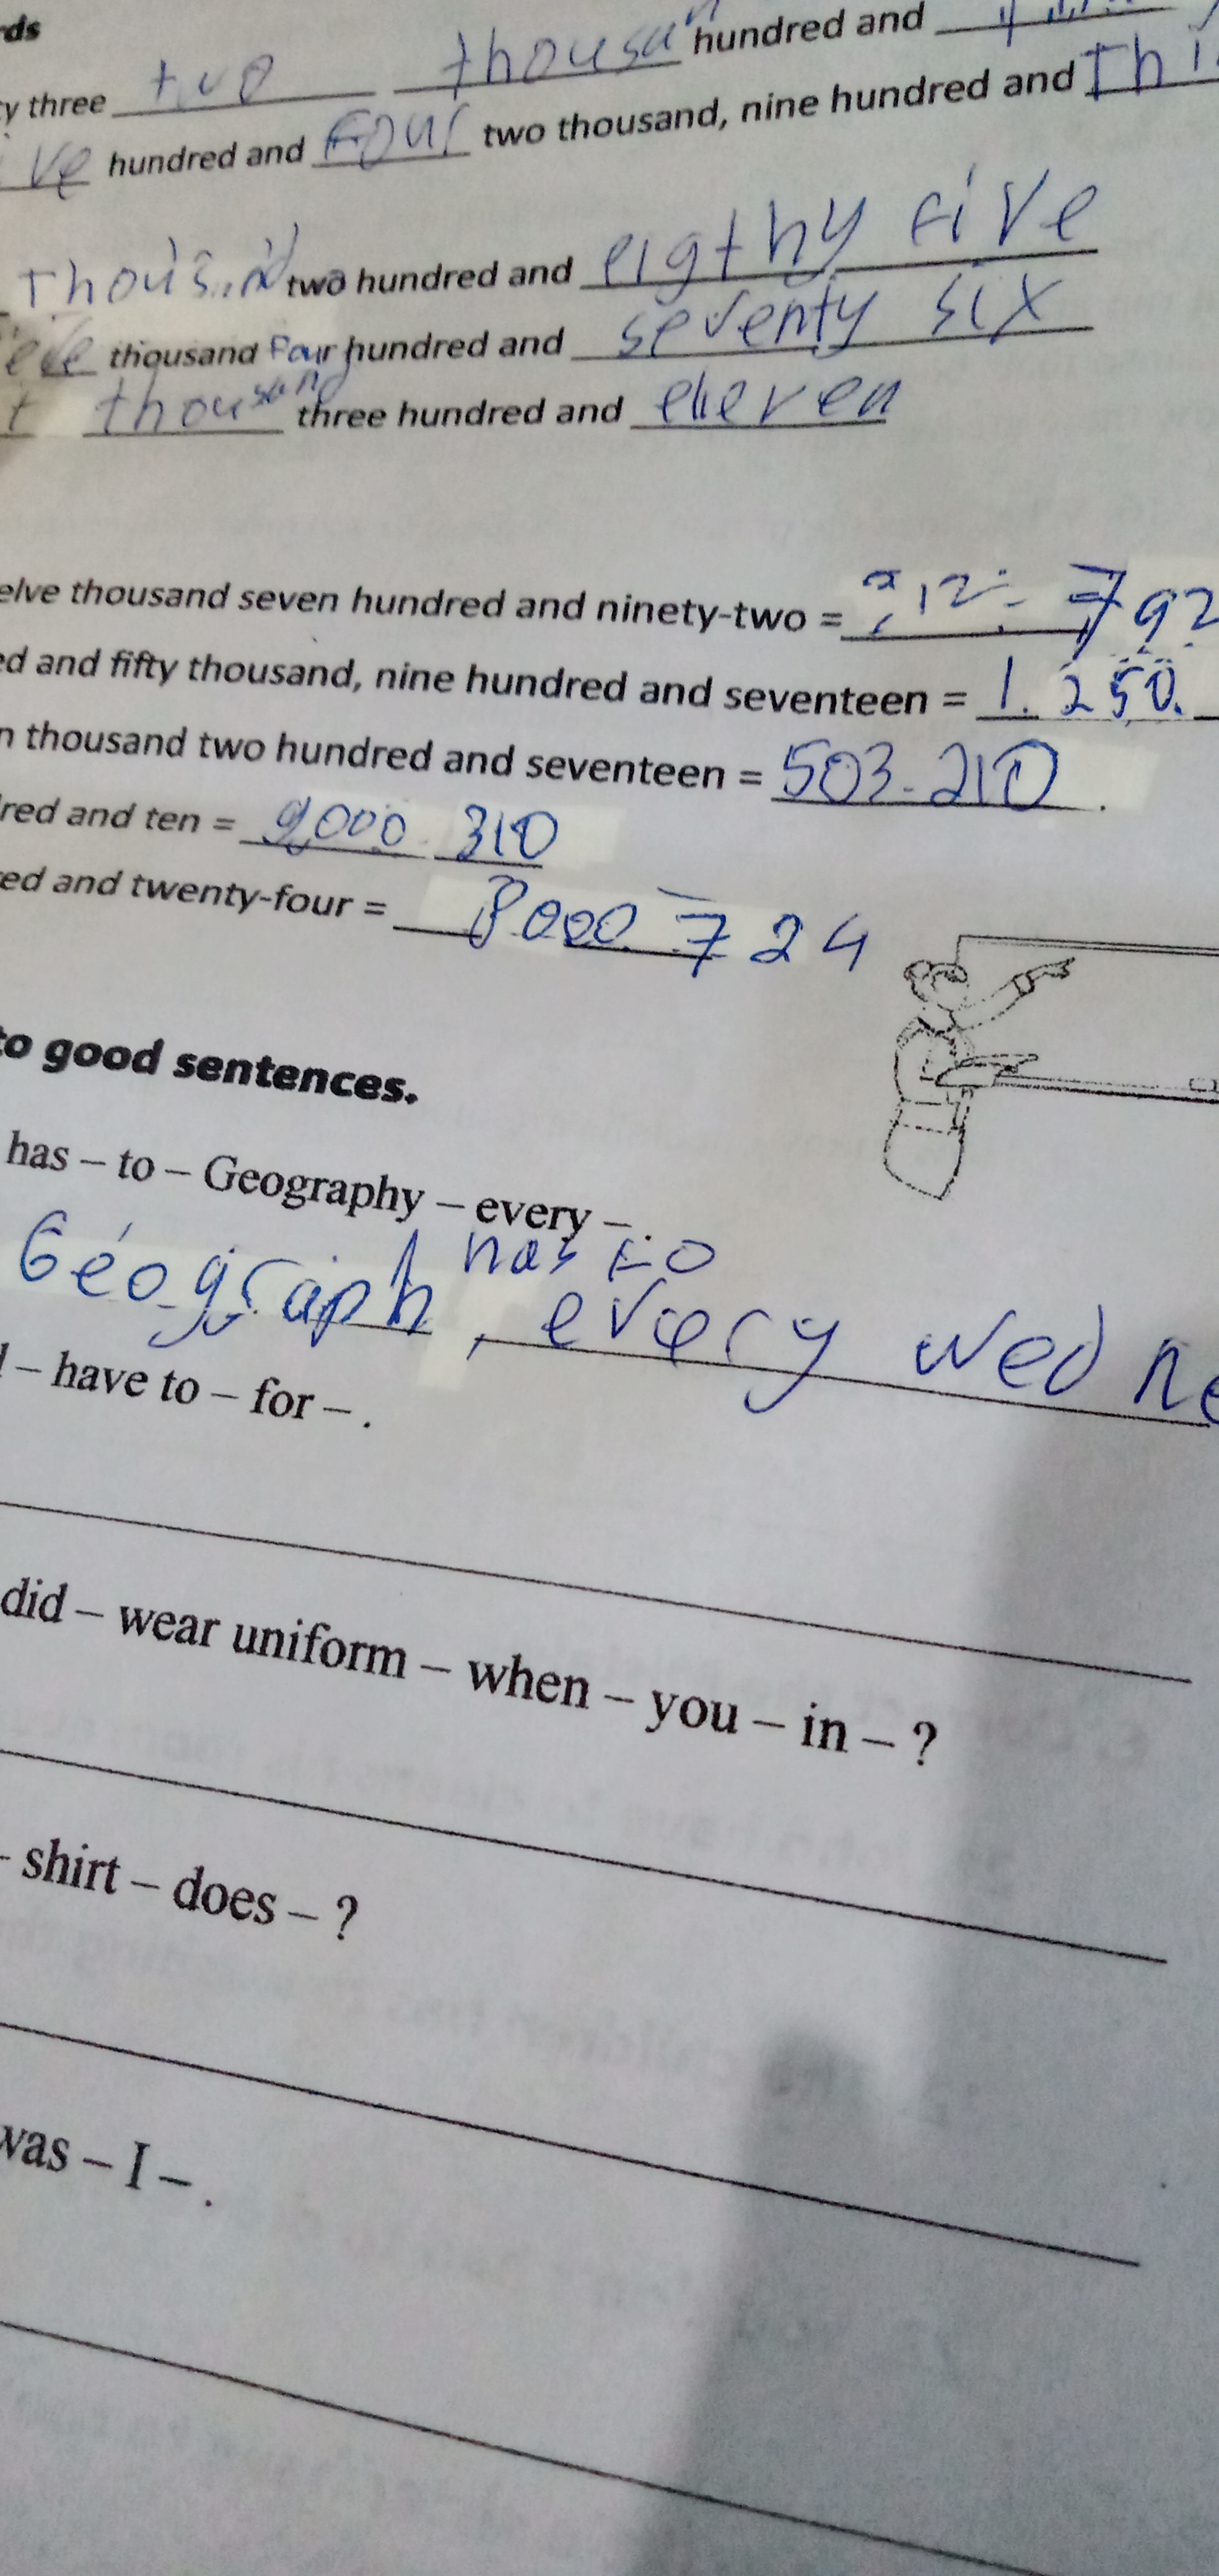 rds
hundred and
y three two thousan
ve hundred and four two thousand, nine hundred and Thi
Thousand two hundred and eigthy five
thousand Four hundred and seventy six
t thousand three hundred and eleven
elve thousand seven hundred and ninety-two = 12 792
ed and fifty thousand, nine hundred and seventeen = 1. 250.
n thousand two hundred and seventeen = 503.210
red and ten = 9000 310
ed and twenty-four = 8000 724
to good sentences.
has – to – Geography – every – .
Geograph, has to every wedne
– have to – for – .
did – wear uniform – when – you – in – ?
- shirt – does – ?
was – I – .